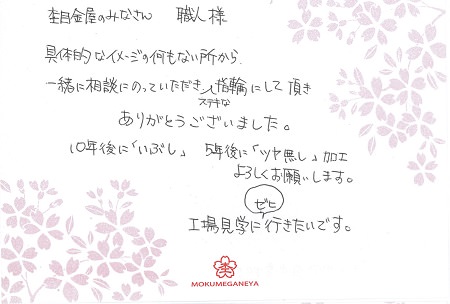 杢目金屋のみなさん 職人様
具体的なイメージの何もない所から、
一緒に相談にのっていただきステキな指輪にして頂き
ありがとうございました。
10年後に「いぶし」 5年後に「ツヤ無し」加工
よろしくお願いします。
ゼヒ
工場見学に行きたいです。
MOKUMEGANEYA